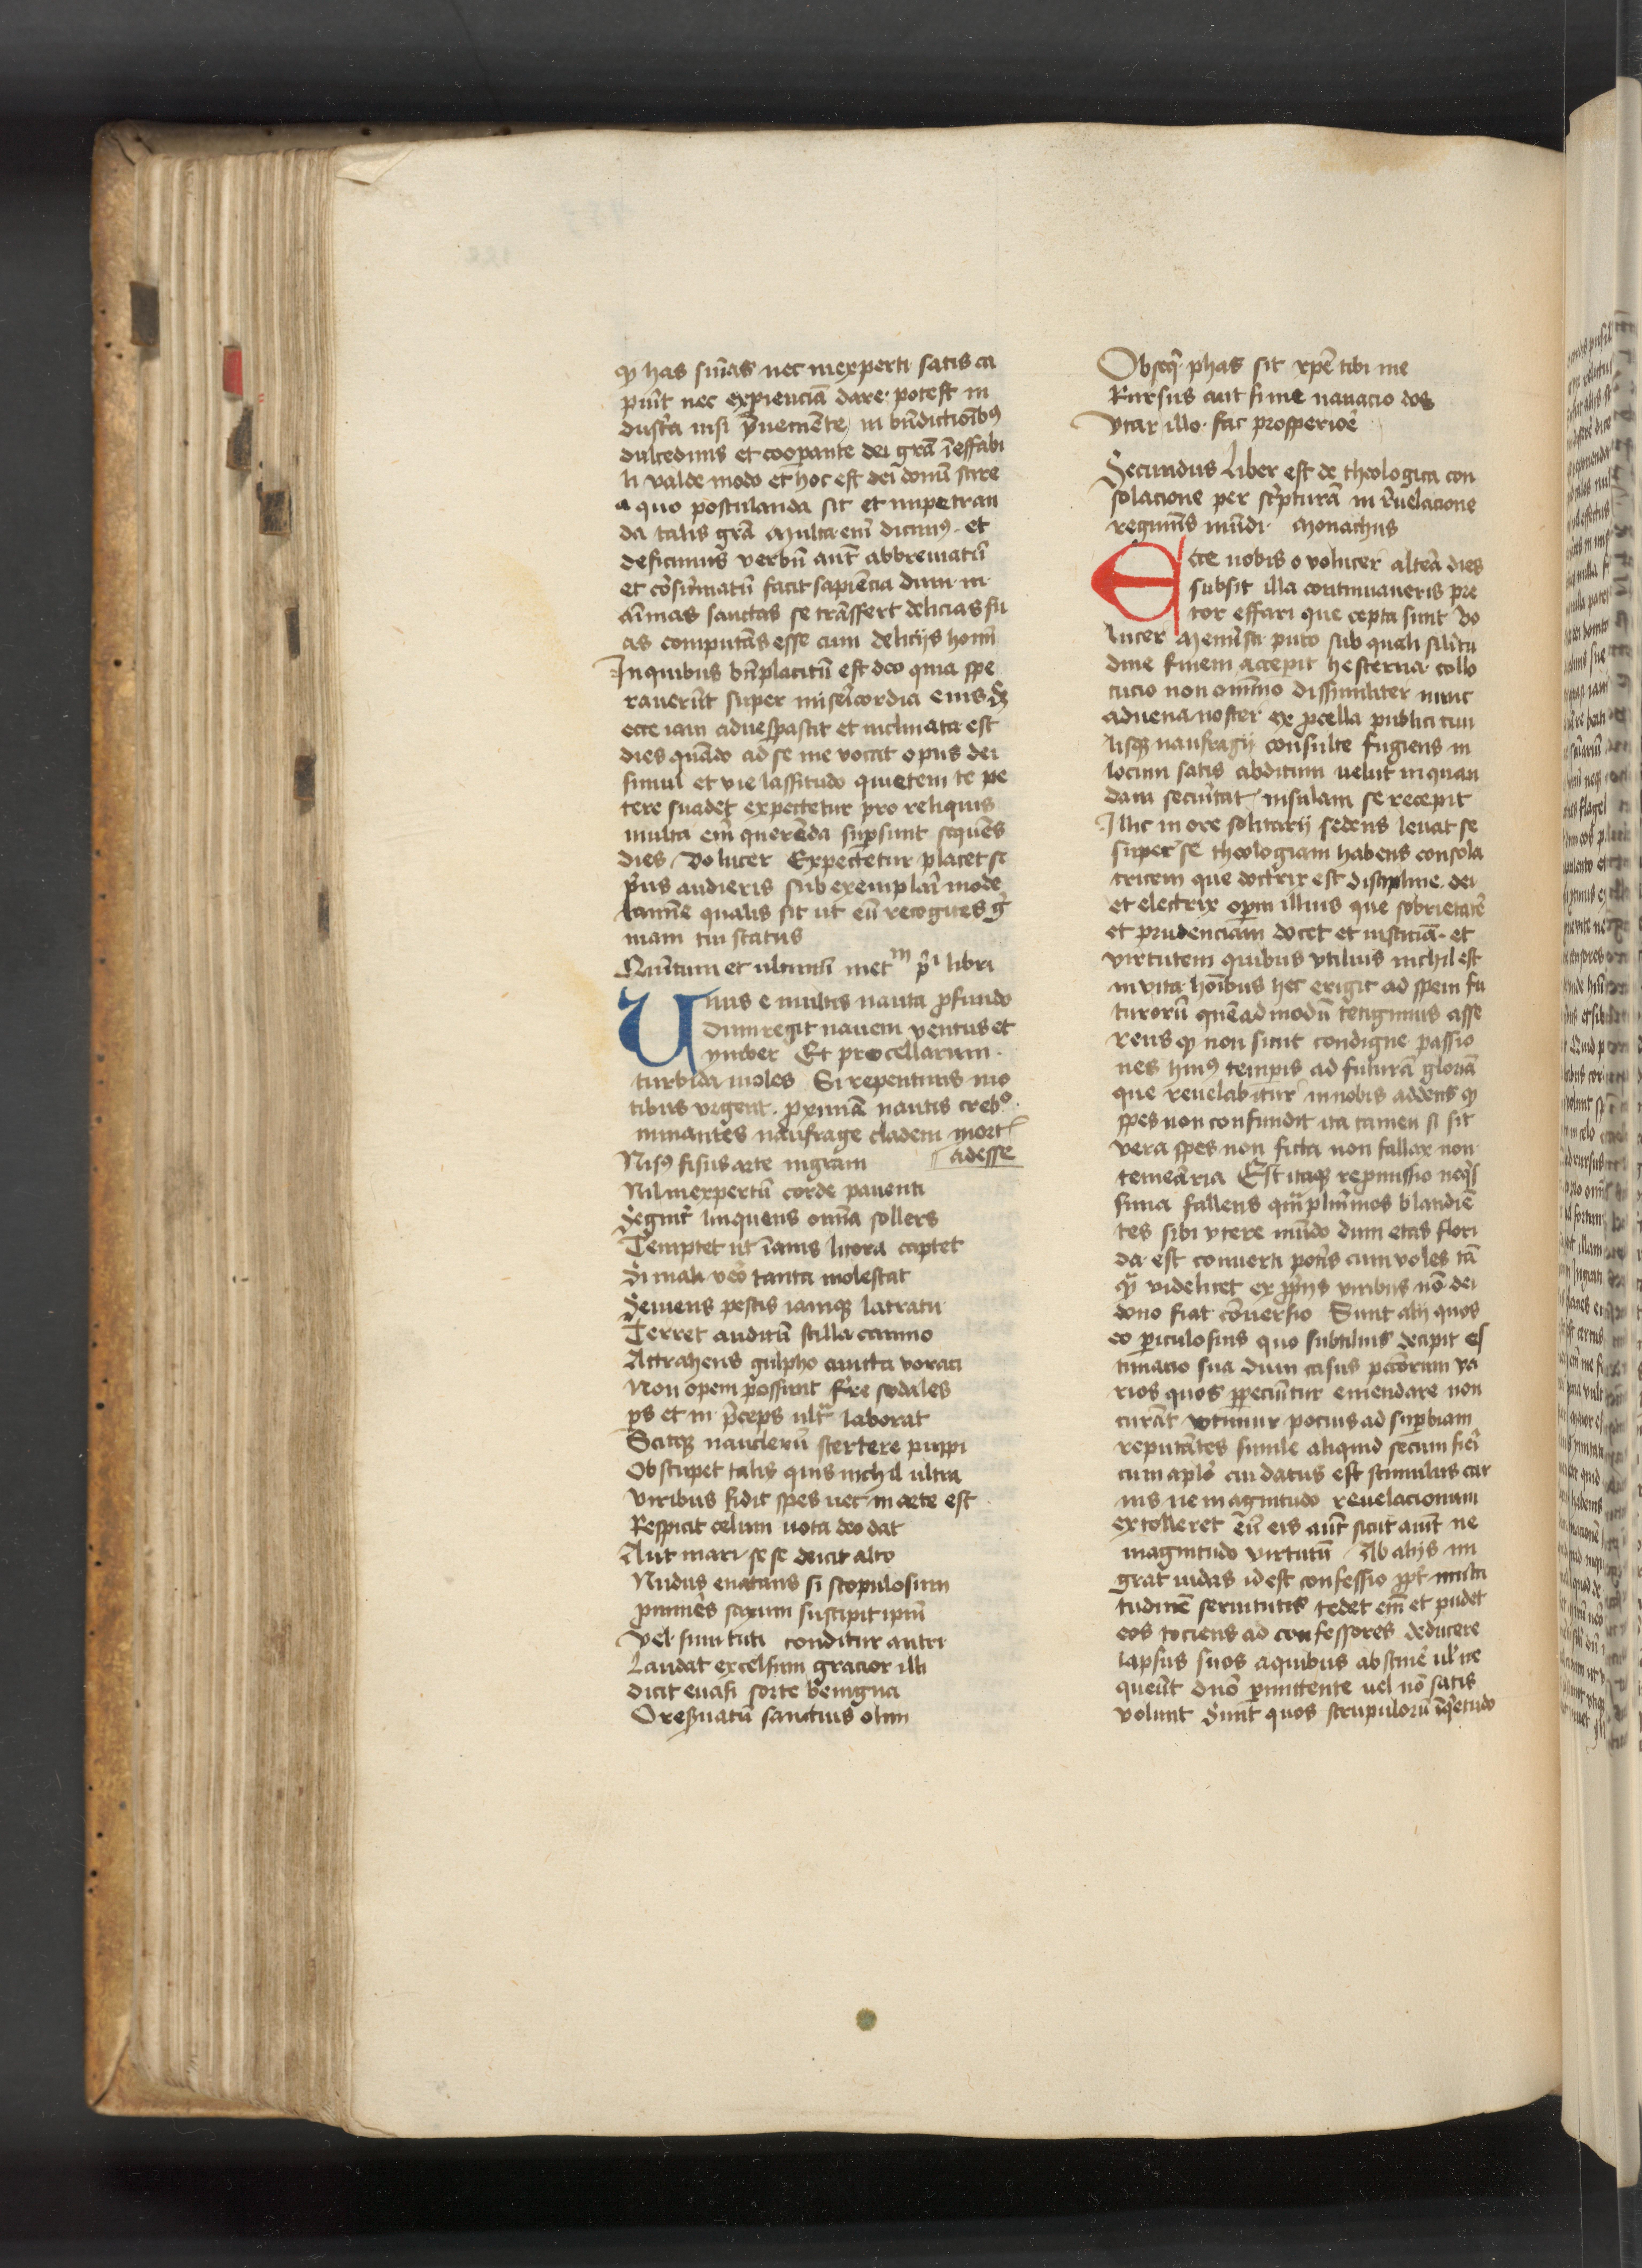 ꝙ has sūīas nec inexperti satis ca
piūt nec expienciā dare potest in
dust'a nisi p̄ueniēte in bn̄dictioībꝰ
dulcedinis et coopante dei grā īeffabi
li valde modo et hoc est dei donū scire
a quo postulanda sit et impetran
da talis grā Multa enī dicimꝰ et
deficimus verbū aut̄ abbreuiatū
et cōsūmatū facit sapiēcia dum in
aīmas sanctas se trāsfert delicias su
as computās esse cum delicijs homī
In quibus bn̄placitū est deo quia spe
rauerūt super misericordia eius Sꝫ
ecce iam aduespascit et inclinata est
dies quādo ad se me vocat opus dei
simul et vie lassitudo quietem te pe
tere suadet expectetur pro reliquis
multa enī querēda supsunt sequēs
dies Volucer Expectetur placet si
p̄us audieris sub exemplari mode
lamīe qualis sit ut eū recogites g̓
mam tui status
Quītum et ultimū metᵐ pⁱ libri
Unus e multis nauta ꝓfundo
Dum regit nauem ventus et
ymber Et procellarum
turbida moles Si repentinis mo
tibus vrgent proximā nautis crebᵒ
minantes naufrage cladem mort
adesse
Nisꝰ fisus arte
Nil inexpertū corde pauenti
Segnit' linquens omīa sollers
Temptet ut īanis litora captet
Si mali vero tanta molestat
Seuiens pestis iamqꝫ latratu
Terret auditū scilla canino
Attrahens gulpho cuncta voraci
Non opem possunt f're sodales
ps et in p̄ceps ultᵃ laborat
Scitqꝫ nauclerū stertere puppi
Obstupet talis quis nichil ultra
Viribus fidit spes nec in arte est
Respicit celum uota deo dat
Aut mari sese deicit alto
Nudus enatans si scopulosum
ꝓminēs saxum suscipit ipm̄
Vel sinu tuti conditur antri
Laudat excelsum gracior illi
dicit euasi sorte benigna
O reseruatū sanctius olim
Obseq̄ phas sit xpē tibi me
Rursus aut si me nauacio dos
Vtar illo fac prosperiorē
Secundus Liber est de theologica con
solacione per sc̓pturā in r̄uelacione
regiminis mūdi Monachus
Ecce nobis o volucer altera dies
subsit illa continuaueris pre
cor effari que cepta sunt Vo
lucer Memīsti puto sub quali silītu
dine finem accepit hesterna collo
cucio non omīno dissimiliter nunc
aduena noster ex ꝓcella publici ciui
lisqꝫ naufragij consulte fugiens in
locum satis abditum uelut in quan
dam secūitat' insulam se recepit
Illic in ore solitarij sedens leuat se
super se theologiam habens consola
tricem que doctrix est discipline dei
et electrix oper̄m illius que sobrietatē
et prudenciam docet et iusticiā et
virtutem quibus vtilius nichil est
in vita hoībus hec erigit ad spem fu
turorū quēadmodū tetigimus asse
rens ꝙ non sunt condigne passio
nes huiꝰ temporis ad futurā gloriā
que reuelabitur in nobis addens ꝙ
spes non confundit ita tamen si sit
vera spes non ficta non fallax non
temeraria Est itaqꝫ repmissio neqs̓
sima fallens qm̄plurimos blandiē
tes sibi vtere mūdo dum etas flori
da est conuerti poti's cum voles tā
qᷓ videlicet ex ꝓprijs viribus nō dei
dono fiat cōuersio Sunt alij quos
eo periculosius quo subtilius decipit es
timacio sua dum casus peccatorum va
rios quos ꝑpeciūtur emendare non
curāt vtimur pocius ad superbiam
reputātes simile aliquid secum fieri
cum aplo cui datus est stimulus car
nis ne magnitudo reuelacionum
extolleret eū eis aut̄ sicut aiūt ne
magnitudo virtutū Ab alijs mi
grat iudas id est confessio ꝓpt' multi
tudinē seruitutis tedet enī et pudet
eos tociens ad confessores deducere
lapsus suos a quibus abstinē ul' ne
queūt dn̄o ꝑmittente uel nō satis
volunt Sunt quos scrupulorū īqetudo